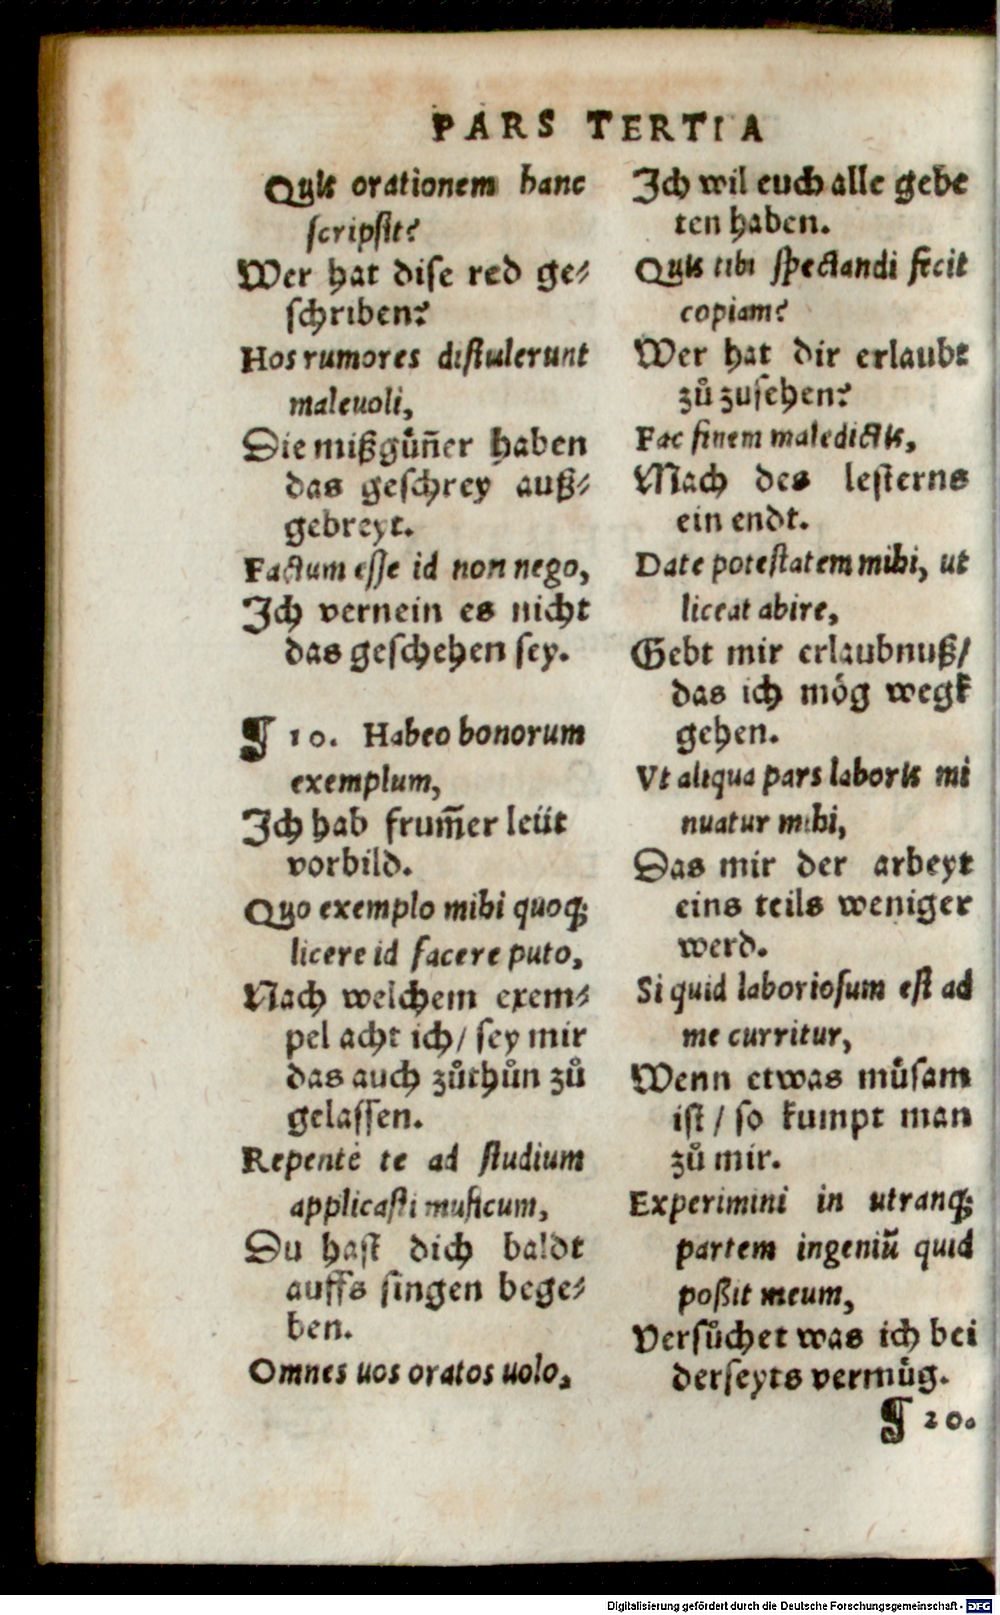 PARS TERTIA
Quis orationem hanc
scripsit?
Wer hat dise red ge⸗
schriben?
Hos rumores distulerunt
maleuoli,
Die mißgün̄er haben
das geschrey auß⸗
gebreyt.
Factum esse id non nego,
Ich vernein es nicht
das geschehen sey.
¶ 10. Habeo bonorum
exemplum,
Ich hab frum̄er leüt
vorbild.
Quo exemplo mihi quoq;
licere id facere puto,
Nach welchem exem⸗
pel acht ich/ sey mir
das auch zůthůn zů
gelassen.
Repente te ad studium
applicasti musicum,
Du hast dich baldt
auffs singen bege⸗
ben.
Omnes uos oratos uolo,
Ich wil euch alle gebe
ten haben.
Quis tibi spectandi fecit
copiam?
Wer hat dir erlaubt
zů zusehen?
Fac finem maledictis,
Mach des lesterns
ein endt.
Date potestatem mihi, ut
liceat abire,
Gebt mir erlaubnuß/
das ich mög wegk
gehen.
Vt aliqua pars laboris mi
nuatur mihi,
Das mir der arbeyt
eins teils weniger
werd.
Si quid laboriosum est ad
me curritur,
Wenn etwas müsam
ist / so kumpt man
zů mir.
Experimini in utranq;
partem ingeniū quid
poßit meum,
Versůchet was ich bei
derseyts vermüg.
¶ 20.
Digitalisierung gefördert durch die Deutsche Forschungsgemeinschaft - DFG